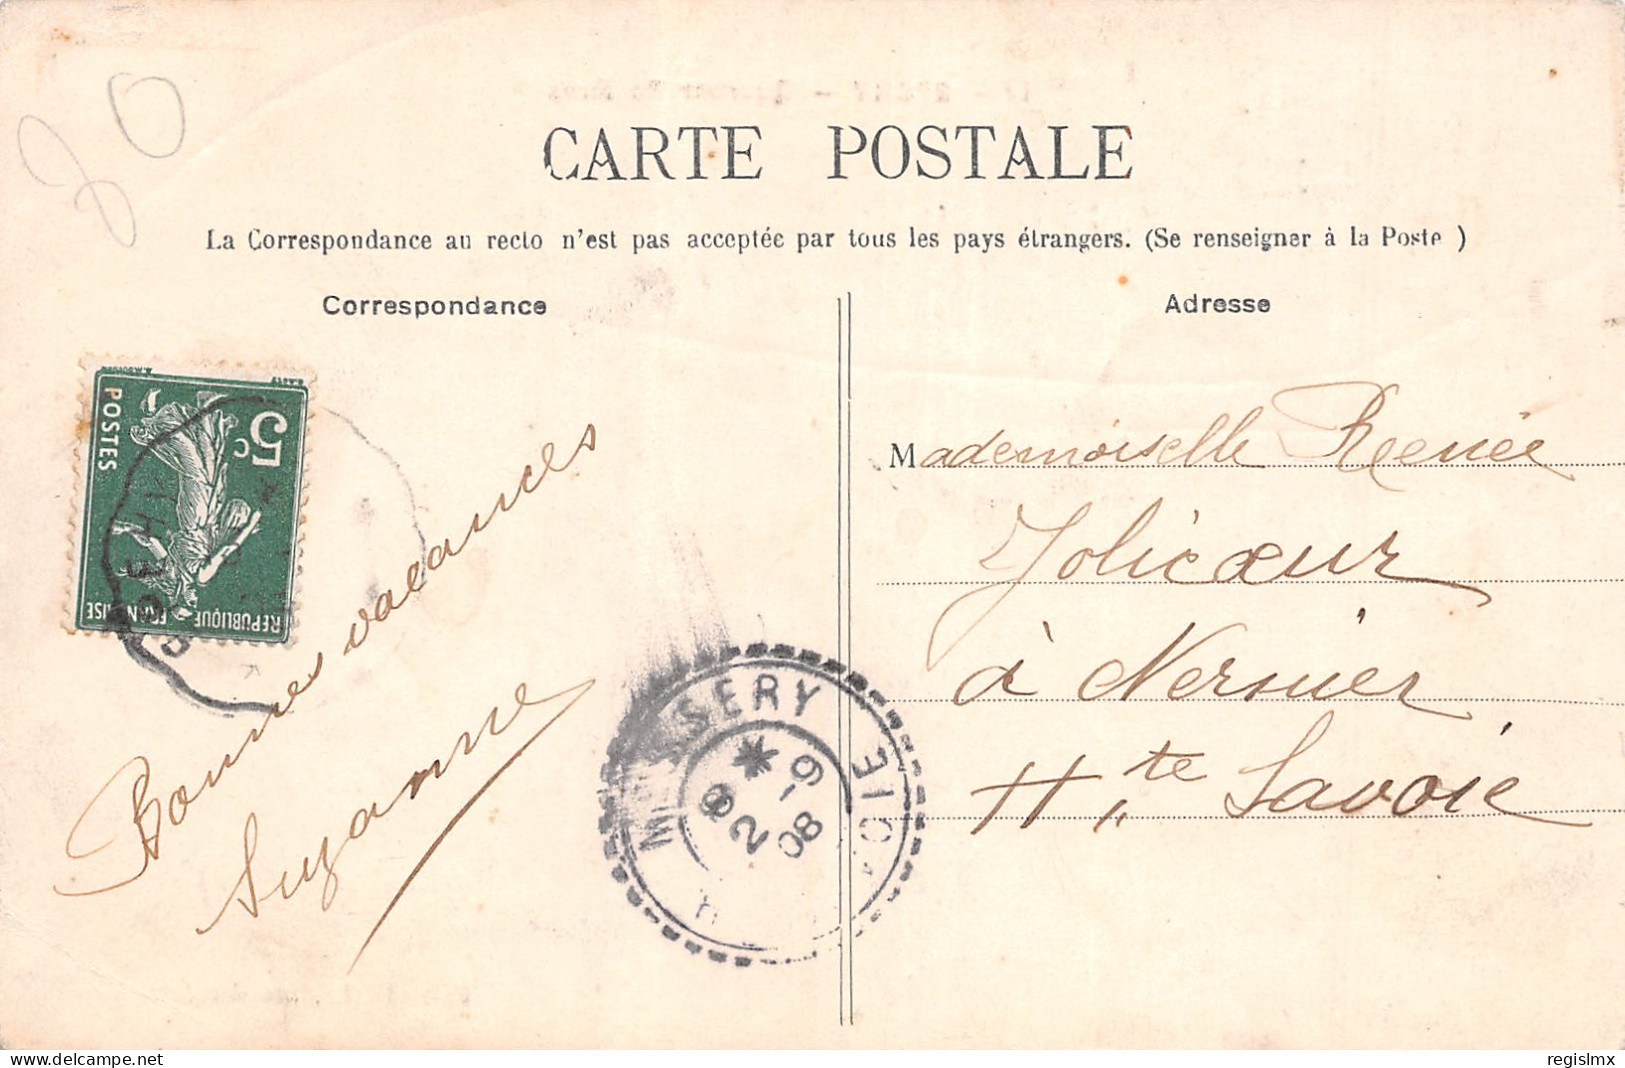 20
CARTE POSTALE
La Correspondance au recto n'est pas acceptée par tous les pays étrangers. (Se renseigner à la Poste )
Correspondance
Adresse
5c
POSTES
REPUBLIQUE FRANÇAISE
Bonnes vacances
Suzanne
MESSERY
9-8
2 08
SAVOIE
Mademoiselle Renée
Jolicœur
à Nernier
Hte Savoie
www.delcampe.net
regislmx